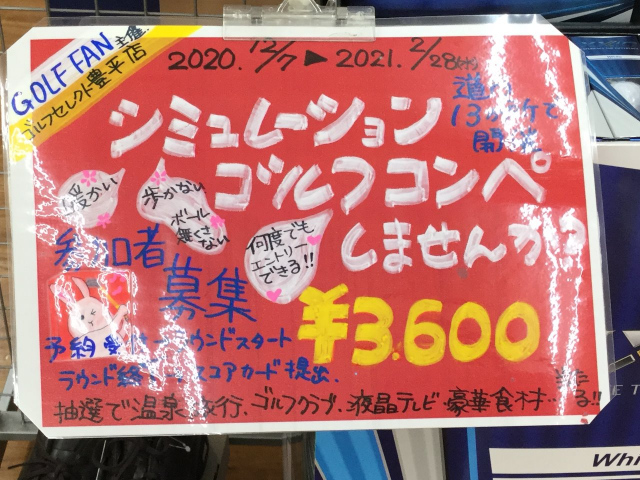 GOLF FAN 主催
ゴルフセレクト豊平店
2020. 12/7 ▶ 2021. 2/28
道内
13か所で
開催
シミュレーション
ゴルフコンペ
しませんか?
暖かい
歩かない
ボール
無くさ
ない
何度でも
エントリー
できる!!
参加者
募集
¥3,600
予約 ラウンドスタート
ラウンド終 スコアカード提出.
抽選で温泉旅行、ゴルフクラブ、液晶テレビ 豪華食材… る!!
Whi